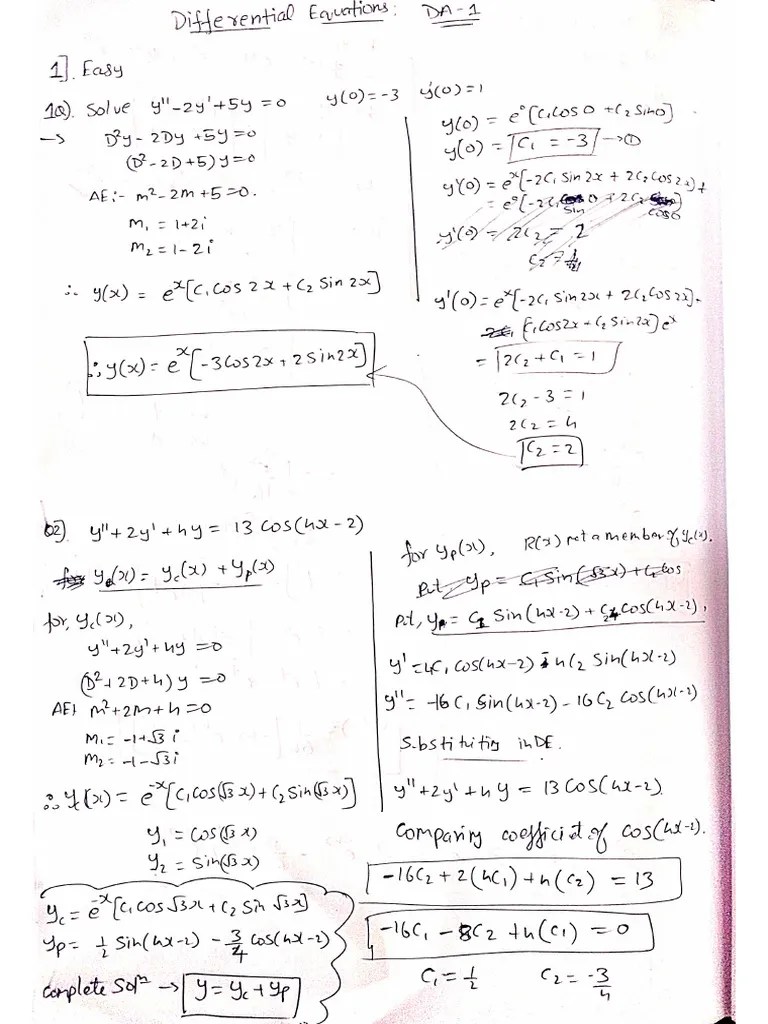 Differential Equations: DA-1
1]. Easy
1Q). Solve y''-2y'+5y=0 y(0)=-3 y'(0)=1
→ D²y - 2Dy + 5y=0
(D²-2D+5)y=0
AE:- m²-2m+5=0.
m₁ = 1+2i
m₂ = 1-2i
∴ y(x) = eˣ[C₁Cos2x + C₂Sin2x]
∴ y(x) = eˣ[-3Cos2x + 2Sin2x]
y(0) = e⁰[C₁Cos0 + C₂Sin0]
y(0) = C₁ = -3 → ①
y'(0) = eˣ[-2C₁Sin2x + 2C₂Cos2x]+
= e⁰[-2C₁ Sin 0 + 2C₂ Cos0]
y'(0) = 2C₂ = 2
y'(0) = eˣ[-2C₁Sin2x + 2C₂Cos2x]+
[C₁Cos2x + C₂Sin2x]eˣ
= 2C₂ + C₁ = 1
2C₂ - 3 = 1
2C₂ = 4
C₂ = 2
Q2]. y''+2y'+4y = 13 Cos(4x-2)
y(x) = yc(x) + yp(x)
for, yc(x),
y''+2y'+4y = 0
(D²+2D+4)y = 0
AE; m²+2m+4=0
m₁ = -1+√3 i
m₂ = -1-√3 i
∴ yc(x) = e⁻ˣ[C₁Cos(√3x) + C₂Sin(√3x)]
y₁ = Cos(√3x)
y₂ = Sin(√3x)
yc = e⁻ˣ[C₁Cos√3x + C₂Sin√3x]
yp = 1/2 Sin(4x-2) - 3/4 Cos(4x-2)
complete Solⁿ → y = yc + yp
for yp(x), R(x) not a member of yc(x).
Put yp = C₁Sin(√3x) + C₂Cos
Put, yp = C₁ Sin(4x-2) + C₂ Cos(4x-2),
y' = 4C₁Cos(4x-2) - 4C₂ Sin(4x-2)
y'' = -16C₁ Sin(4x-2) - 16C₂ Cos(4x-2)
Substituting in DE.
y''+2y'+4y = 13Cos(4x-2)
Comparing coefficient of Cos(4x-2).
-16C₂ + 2(4C₁) + 4(C₂) = 13
-16C₁ - 8C₂ + 4(C₁) = 0
C₁ = 1/2 C₂ = -3/4